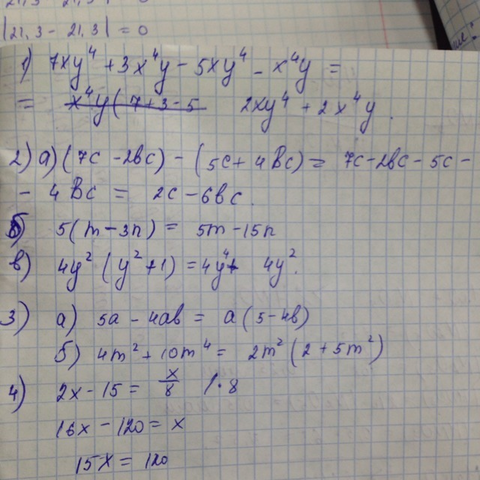 |21,3 - 21,3| = 0
1) 7xy⁴ + 3x⁴y - 5xy⁴ - x⁴y =
= x⁴y(7+3-5 2xy⁴ + 2x⁴y.
2) а) (7c - 2bc) - (5c + 4Bc) = 7c - 2bc - 5c -
- 4Bc = 2c - 6bc.
б) 5(m - 3n) = 5m - 15n
в) 4y² (y² + 1) = 4y⁴ + 4y².
3) а) 5a - 4ab = a(5 - 4b)
б) 4m² + 10m⁴ = 2m² (2 + 5m²)
4) 2x - 15 = x/8 /·8
16x - 120 = x
15x = 120